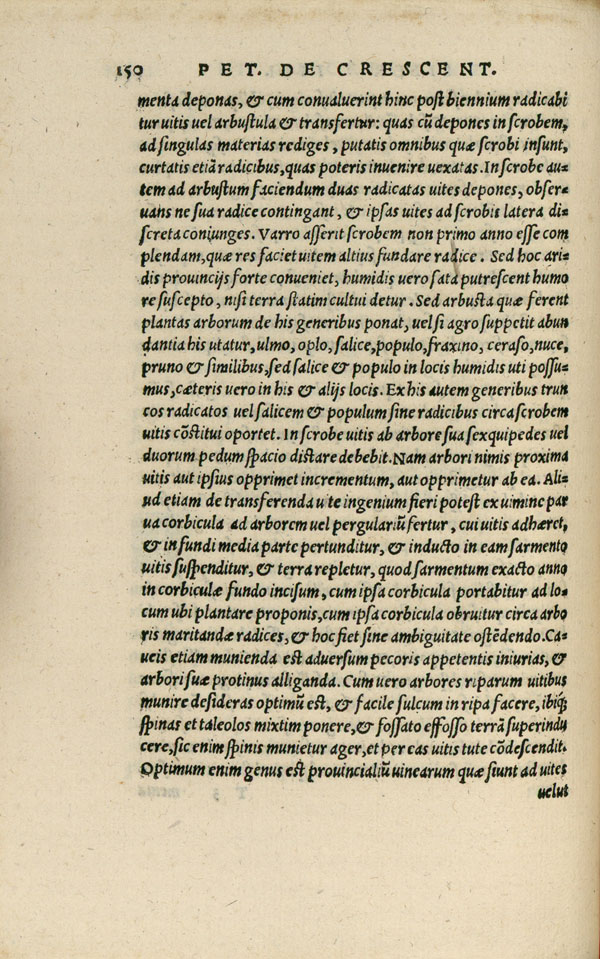 150 PET. DE CRESCENT.
menta deponas, & cum conualuerint hinc post biennium radicabi
tur uitis uel arbustula & transfertur: quas cũ depones in scrobem,
ad singulas materias rediges, putatis omnibus quæ scrobi insunt,
curtatis etiã radicibus, quas poteris inuenire uexatas. In scrobe au-
tem ad arbustum faciendum duas radicatas uites depones, obser-
uans ne sua radice contingant, & ipsas uites ad scrobis latera di-
screta coniunges. Varro asserit scrobem non primo anno esse com
plendam, quæ res faciet uitem altius fundare radice. Sed hoc ari-
dis prouincijs forte conueniet, humidis uero sata putrescent humo
re suscepto, nisi terra statim cultui detur. Sed arbusta quæ ferent
plantas arborum de his generibus ponat, uel si agro suppetit abun
dantia his utatur, ulmo, oplo, salice, populo, fraxino, ceraso, nuce,
pruno & similibus, sed salice & populo in locis humidis uti possu-
mus, cæteris uero in his & alijs locis. Ex his autem generibus trun
cos radicatos uel salicem & populum sine radicibus circa scrobem
uitis cõstitui oportet. In scrobe uitis ab arbore sua sexquipedes uel
duorum pedum spacio distare debebit. Nam arbori nimis proxima
uitis aut ipsius opprimet incrementum, aut opprimetur ab ea. Ali-
ud etiam de transferenda uite ingenium fieri potest ex uimine par
ua corbicula ad arborem uel pergulariũ fertur, cui uitis adhæret,
& in fundi media parte pertunditur, & inducto in eam sarmento
uitis suspenditur, & terra repletur, quod sarmentum exacto anno
in corbiculæ fundo incisum, cum ipsa corbicula portabitur ad lo-
cum ubi plantare proponis, cum ipsa corbicula obruitur circa arbo
ris maritandæ radices, & hoc fiet sine ambiguitate ostẽdendo. Ca-
ueis etiam munienda est aduersum pecoris appetentis iniurias, &
arbori suæ protinus alliganda. Cum uero arbores riparum uitibus
munire desideras optimũ est, & facile sulcum in ripa facere, ibiq;
spinas et taleolos mixtim ponere, & fossato effosso terrã superindu
cere, sic enim spinis munietur ager, et per eas uitis tute cõdescendit.
Optimum enim genus est prouincialiũ uinearum quæ fiunt ad uites
uelut